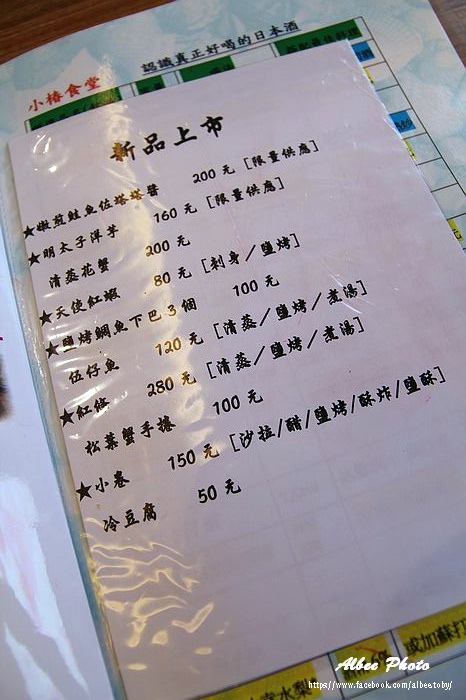 認識真正好喝的日本酒
小椿食堂
新品上市
★嫩煎鮭魚佐塔塔醬 200元 [限量供應]
★明太子洋芋 160元 [限量供應]
清蒸花蟹 200元
★天使紅蝦 80元 [刺身/鹽烤]
★鹽烤鯛魚下巴3個 100元
伍仔魚 120元 [清蒸/鹽烤/煮湯]
★紅條 280元 [清蒸/鹽烤/煮湯]
松葉蟹手捲 100元
★小卷 150元 [沙拉/醋/鹽烤/酥炸/鹽酥]
冷豆腐 50元
或加蘇打
Albee Photo
https://www.facebook.com/albeetoby/